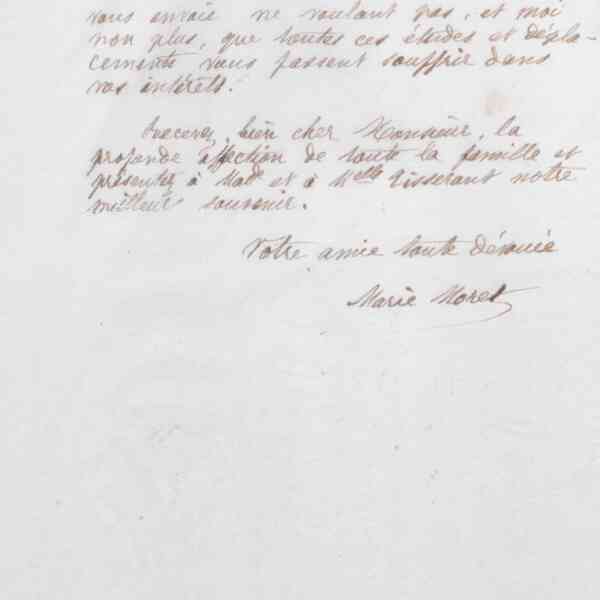 vous envoie ne voulant pas, et moi
non plus, que toutes ces études et dépla-
cements vous fassent souffrir dans
vos intérêts.
Recevez, bien cher Monsieur, la
profonde affection de toute la famille et
présentez à Mad. et à Melle Tisserant notre
meilleur souvenir.
Votre amie toute dévouée
Marie Moret